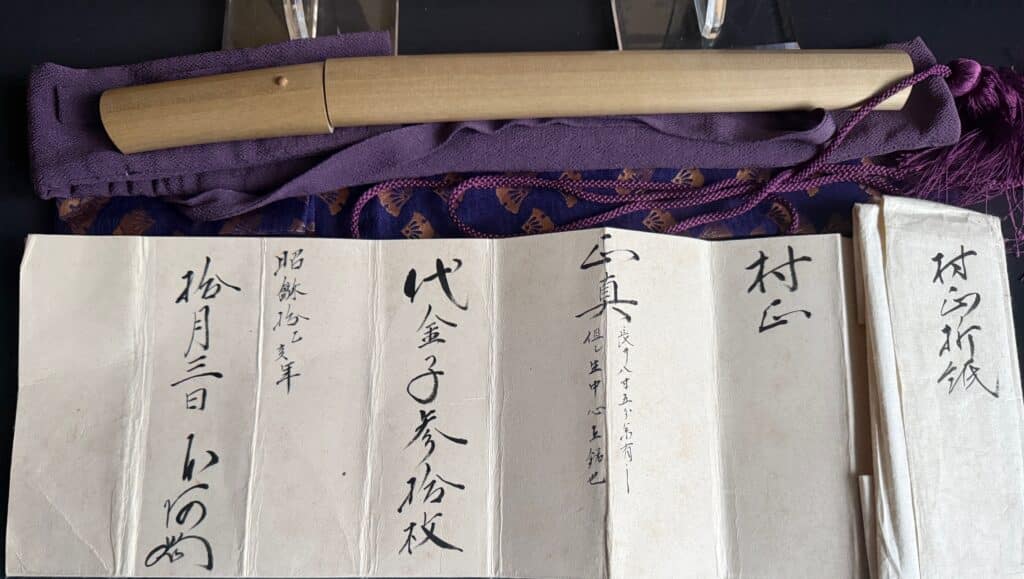 村正折紙
村正
正真
長サ八寸五分
但シ生中心在銘也
代金子参拾枚
昭龢拾乙亥年
拾月三日 本阿